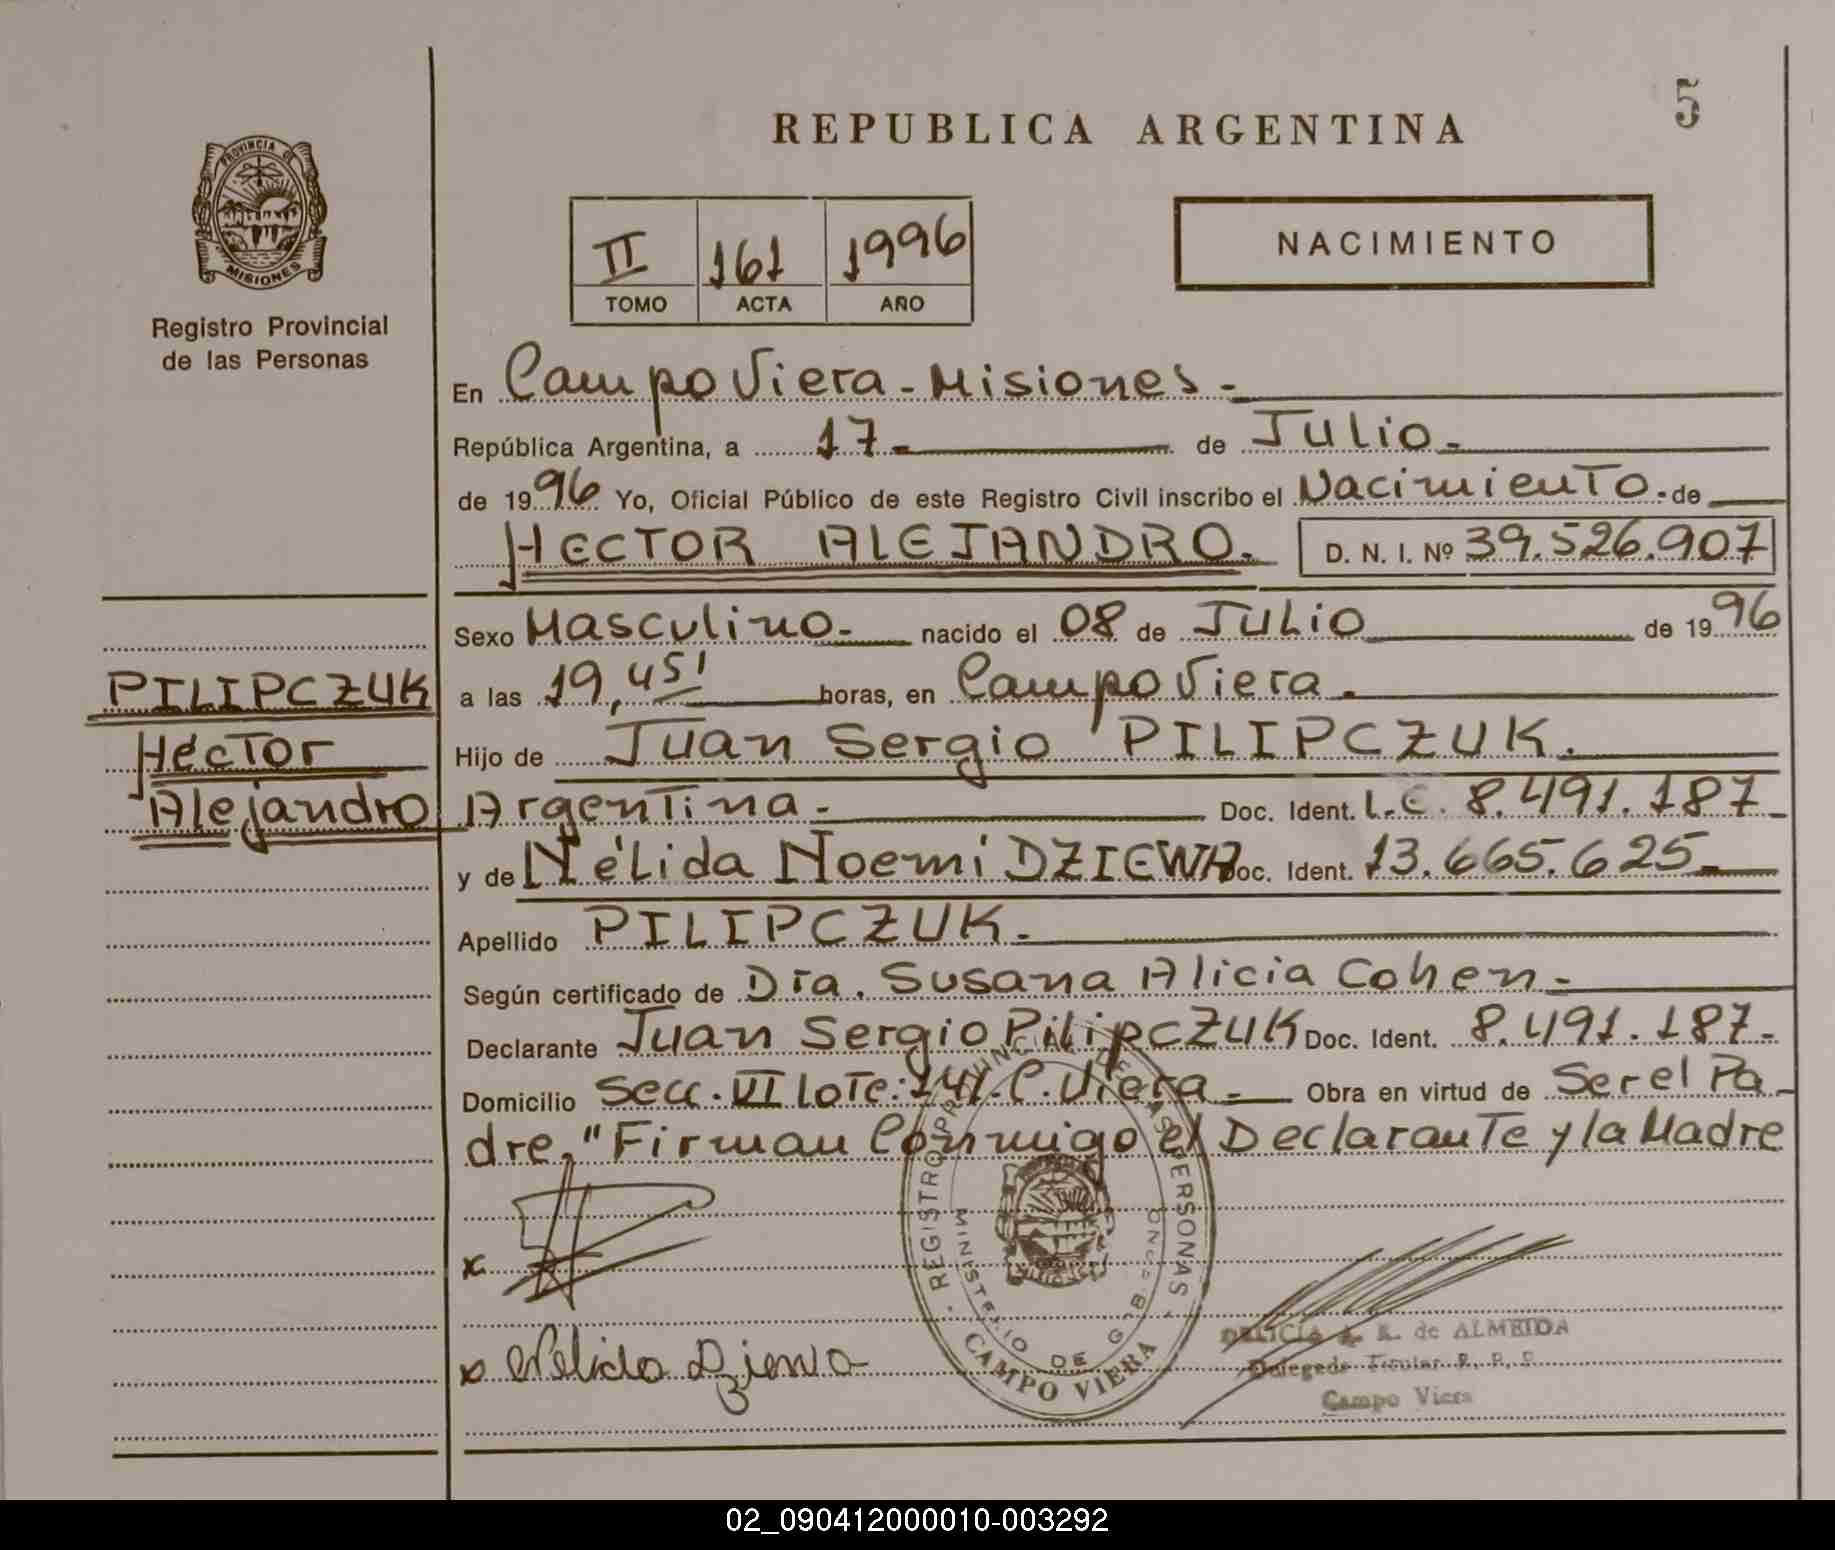 5
REPUBLICA ARGENTINA
PROVINCIA DE
MISIONES
Registro Provincial
de las Personas
II 161 1996
TOMO ACTA AÑO
NACIMIENTO
En Campo Viera - Misiones -
República Argentina, a 17 - de Julio -
de 1996 Yo, Oficial Público de este Registro Civil inscribo el Nacimiento. de
HECTOR ALEJANDRO. D. N. I. Nº 39.526.907
Sexo Masculino - nacido el 08 de Julio de 1996
PILIPCZUK
Héctor
Alejandro
a las 19,45' horas, en Campo Viera.
Hijo de Juan Sergio PILIPCZUK.
Argentina - Doc. Ident. L.E. 8.491.187-
y de Nélida Noemí DZIEWA Doc. Ident. 13.665.625-
Apellido PILIPCZUK.
Según certificado de Dra. Susana Alicia Cohen -
Declarante Juan Sergio PilipcZUK Doc. Ident. 8.491.187-
Domicilio Secc. VI Lote: 141. C. Viera - Obra en virtud de Ser el Pa-
dre, "Firman Conmigo el Declarante y la Madre
REGISTRO PROVINCIAL DE LAS PERSONAS
MINISTERIO DE GOBIERNO
CAMPO VIERA
x
x Nelida Dziewa
DELICIA A. R. de ALMEIDA
Delegada Titular R. P. P.
Campo Viera
02_090412000010-003292